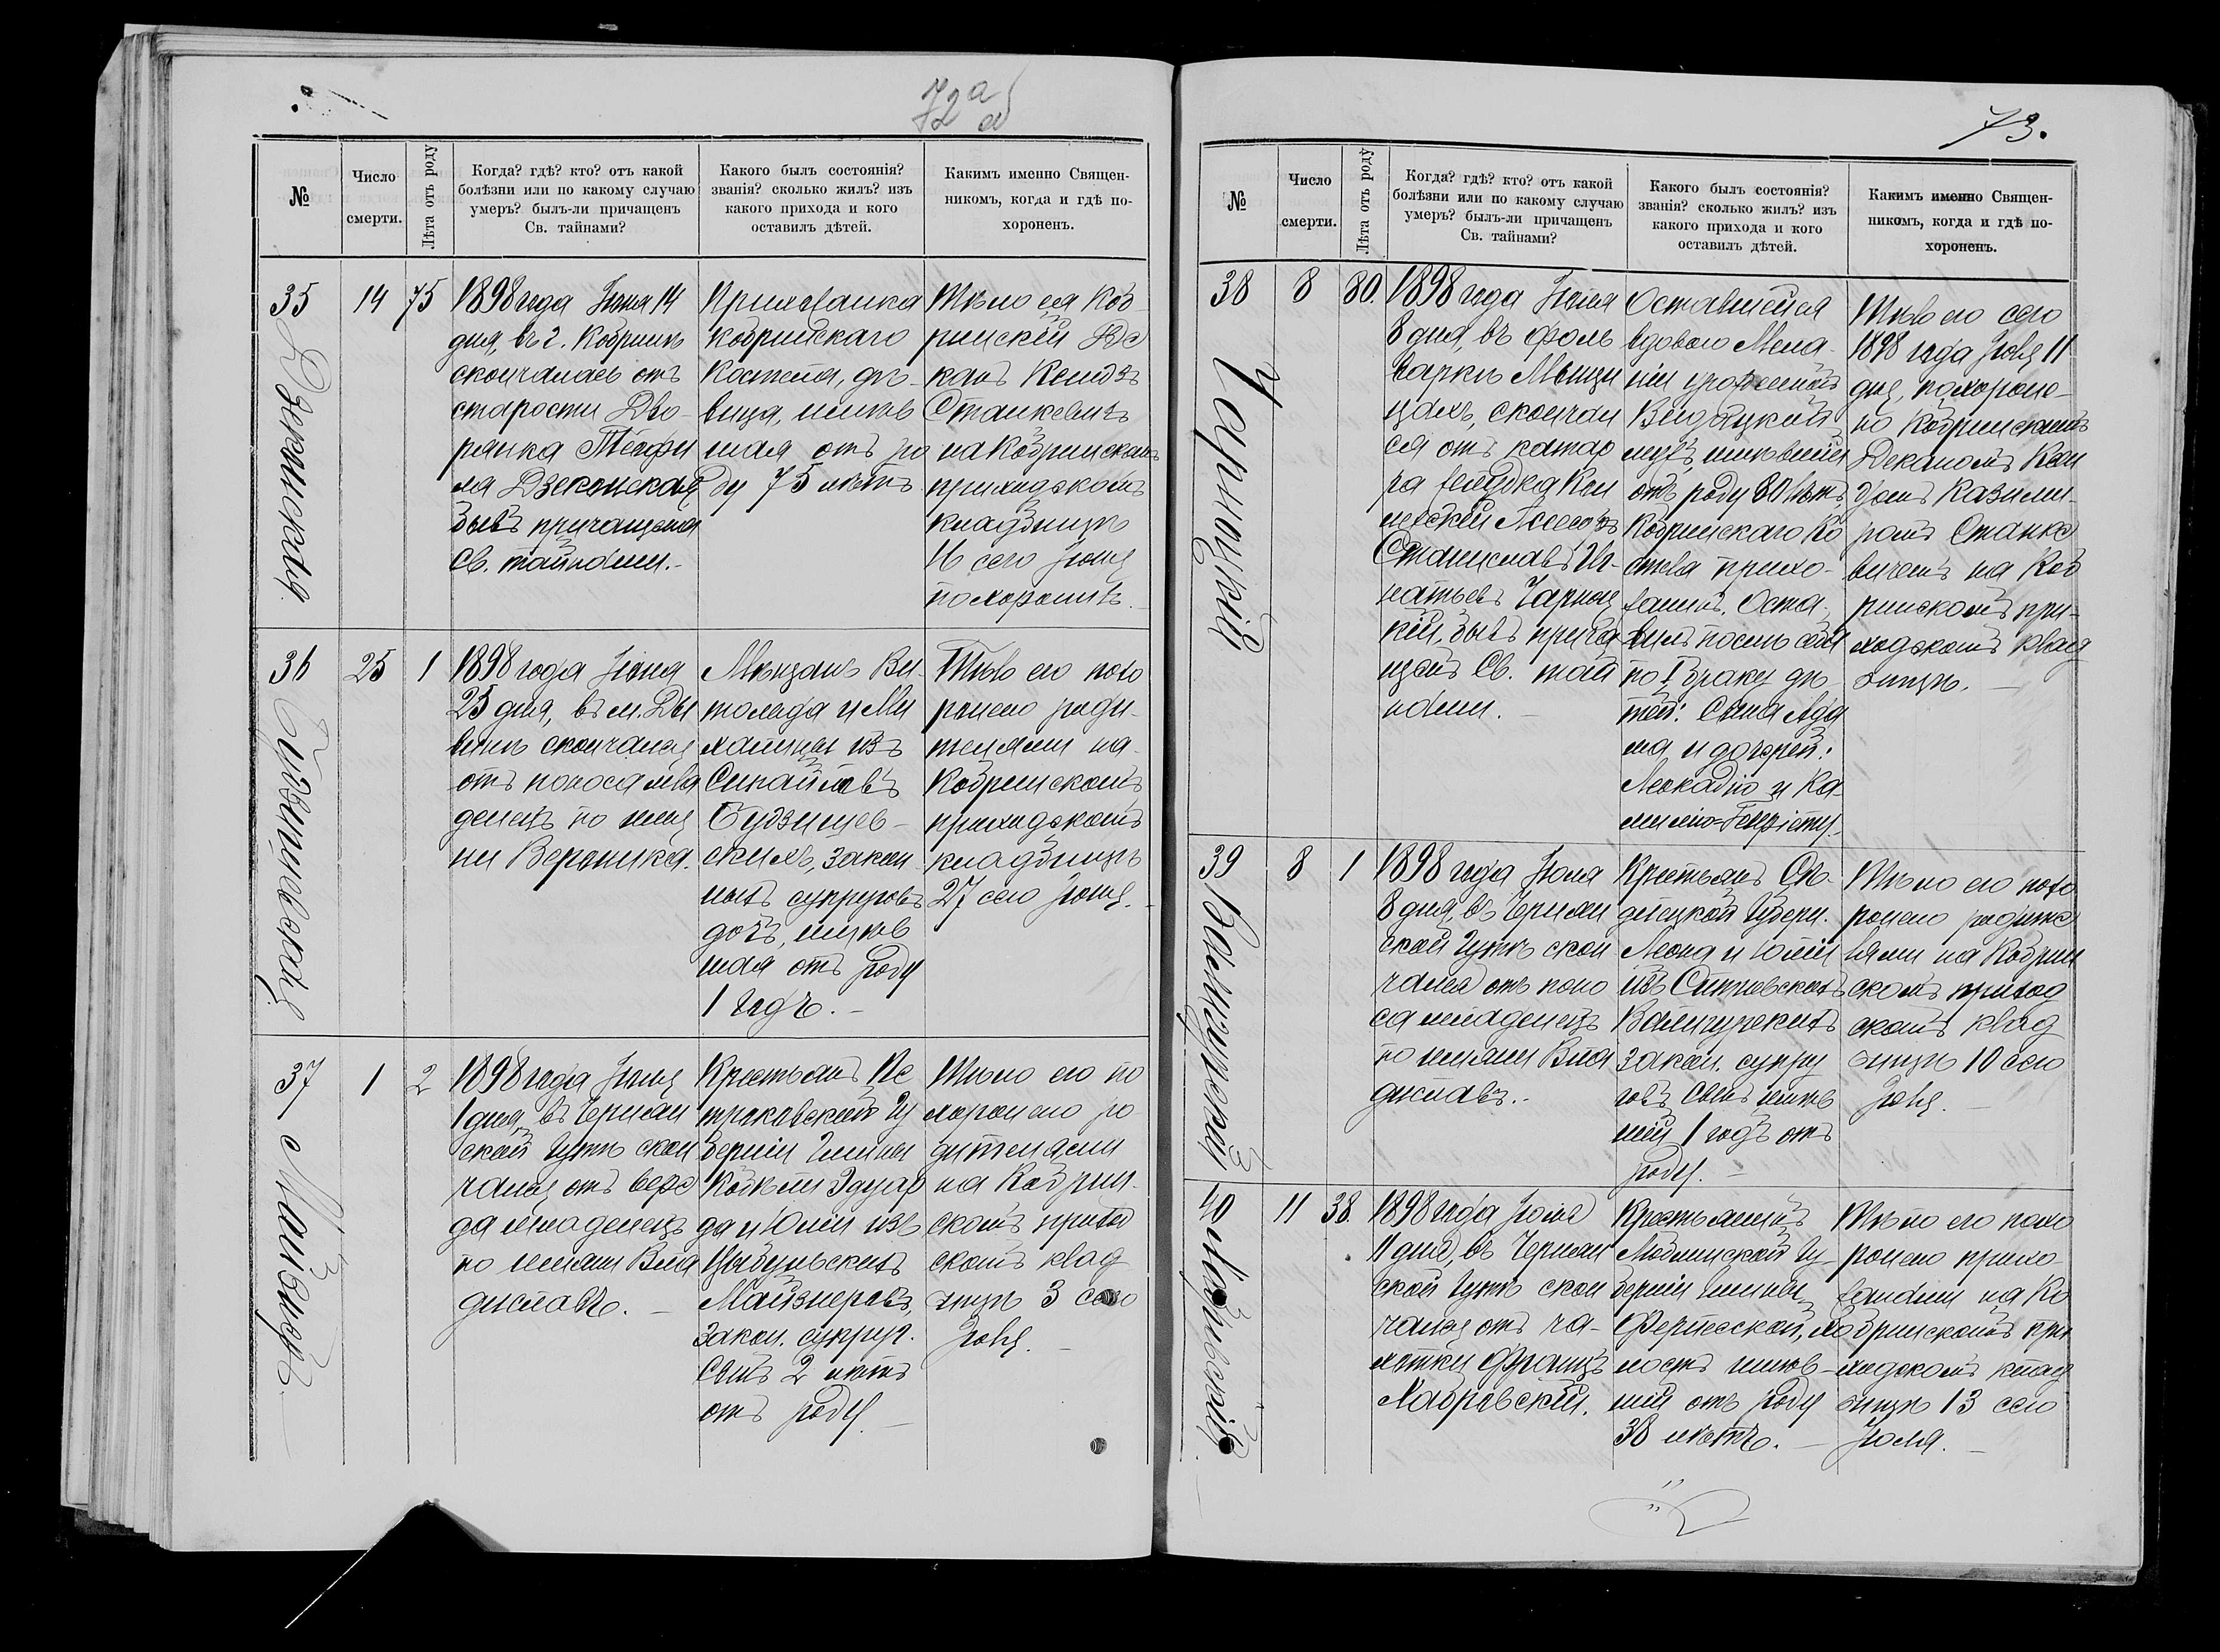 72а
№
Число
смерти.
Лѣта отъ роду
Когда? гдѣ? кто? отъ какой
болѣзни или по какому случаю
умеръ? былъ-ли причащенъ
Св. тайнами?
Какого былъ состоянія?
званія? сколько жилъ? изъ
какого прихода и кого
оставилъ дѣтей.
Какимъ именно Священ-
никомъ, когда и гдѣ по-
хороненъ.
35
Дзеконская
14
75
1898 года Іюня 14
дня, въ г. Кобринѣ
скончалась отъ
старости Дво-
рянка Теофи
ла Дзеконская
бывъ причащена
Св. тайнами.-
Прихожанка
Кобринскаго
Костела, дѣ-
вица, имѣв
шая отъ ро
ду 75 лѣтъ.
Тѣло ея Коб-
ринскій Де
канъ Ксендзъ
Станкевичъ
на Кобринскомъ
приходскомъ
кладбищѣ
16 сего Іюня
похоронилъ.
36
25
1
1898 года Іюня
25 дня, въ м. Ды
винѣ скончалась
отъ поноса мла
денецъ по име
ни Вероника.
Мѣщанъ Ви-
толда и Ми
халины изъ
Будзишев-
скихъ, закон
ныхъ супруговъ
дочь, имѣв
шая отъ роду
1 годъ.-
Тѣло его похо
ронено роди-
телями на
Кобринскомъ
приходскомъ
кладбищѣ
27 сего Іюня.-
37
Майзнеръ
1
2
1898 года Іюля
1 дня, въ Чериян
ской Гутѣ скон
чался отъ
младенецъ
по имени Вла
диславъ.-
Крестьянъ Пе
троковской Гу
берніи Гмины
Эдуар
да и Юліи изъ
Цыбульскихъ
Майзнеровъ,
закон. супруг.
сынъ 2 лѣтъ
отъ роду.-
Тѣло его по
хоронено ро
дителями
на Кобрин-
скомъ приход
скомъ клад
бищѣ 3 сего
Іюля.-
73.
№
Число
смерти.
Лѣта отъ роду
Когда? гдѣ? кто? отъ какой
болѣзни или по какому случаю
умеръ? былъ-ли причащенъ
Св. тайнами?
Какого былъ состоянія?
званія? сколько жилъ? изъ
какого прихода и кого
оставилъ дѣтей.
Какимъ именно Священ-
никомъ, когда и гдѣ по-
хороненъ.
38
Чарноцкій
8
80.
1898 года Іюля
8 дня, въ фоль
варкѣ Мыщи
цахъ, скончал
ся отъ катар
ра желудка Кол
лежскій Асессоръ
Станиславъ Иг-
натьевъ Чарноц
кій, бывъ прича
щенъ Св. тай
нами.-
Оставшейся
вдовою Мела-
ніи урожденной
мужъ, имѣвшій
отъ роду 80 лѣтъ,
Кобринскаго Ко
стела прихо-
жанинъ. Оста-
вилъ послѣ себя
по I браку дѣ-
тей: сына Ада
ма и дочерей:
Леокадію и Ка-
милію-Генріету.
Тѣло его сего
1898 года Іюля 11
дня, похороне-
но Кобринскимъ
Деканомъ Ксен
дзомъ Казими-
ромъ Станке
вичемъ на Коб
ринскомъ при-
ходскомъ клад
бищѣ.-
39
Валигурскій
8
1
1898 года Іюля
8 дня, въ Черiян
ской Гутѣ скон
чался отъ поно
са младенецъ
по имени Вла
диславъ.-
Крестьянъ Сѣ-
длецкой Губерн.
Леона и Юліи
изъ Ситковскихъ
Валигурскихъ
закон. супру
говъ сынъ имѣв
шій 1 годъ отъ
роду.-
Тѣло его похо
ронено родите
лями на Кобрин
скомъ приход
скомъ клад
бищѣ 10 сего
Іюля.-
40
11
38.
1898 года Іюля
11 дня, въ Черiян
ской Гутѣ скон
чался отъ ча-
хотки Францъ
Хабровскій.
Крестьянинъ
Люблинской Гу-
берніи Гмины
хо
лостъ имѣв-
шій отъ роду
38 лѣтъ.-
Тѣло его похо
ронено прихо-
жанами на Ко
бринскомъ при
ходскомъ клад
бищѣ 13 сего
Іюля.-